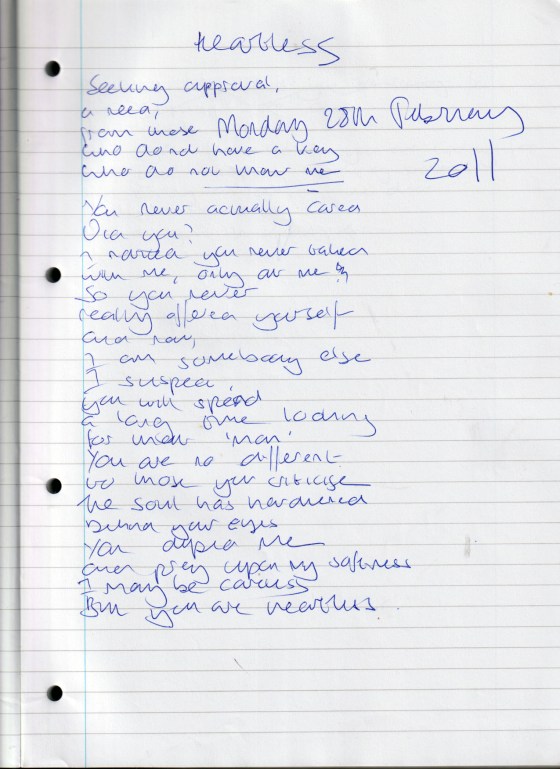 Heartless
Seeking approval,
a need,
from those Monday 28th February
who do not have a key
2011
who do not know me
You never actually cared
Did you?
I noticed you never talked
with me, only at me
So you never
really offered yourself
and now,
I am somebody else
I suspect,
you will spend
a long time looking
for that 'man'
You are no different
to those you criticise
the soul has hardened
behind your eyes
You me
and prey upon my softness
I may be careless
But you are heartless.